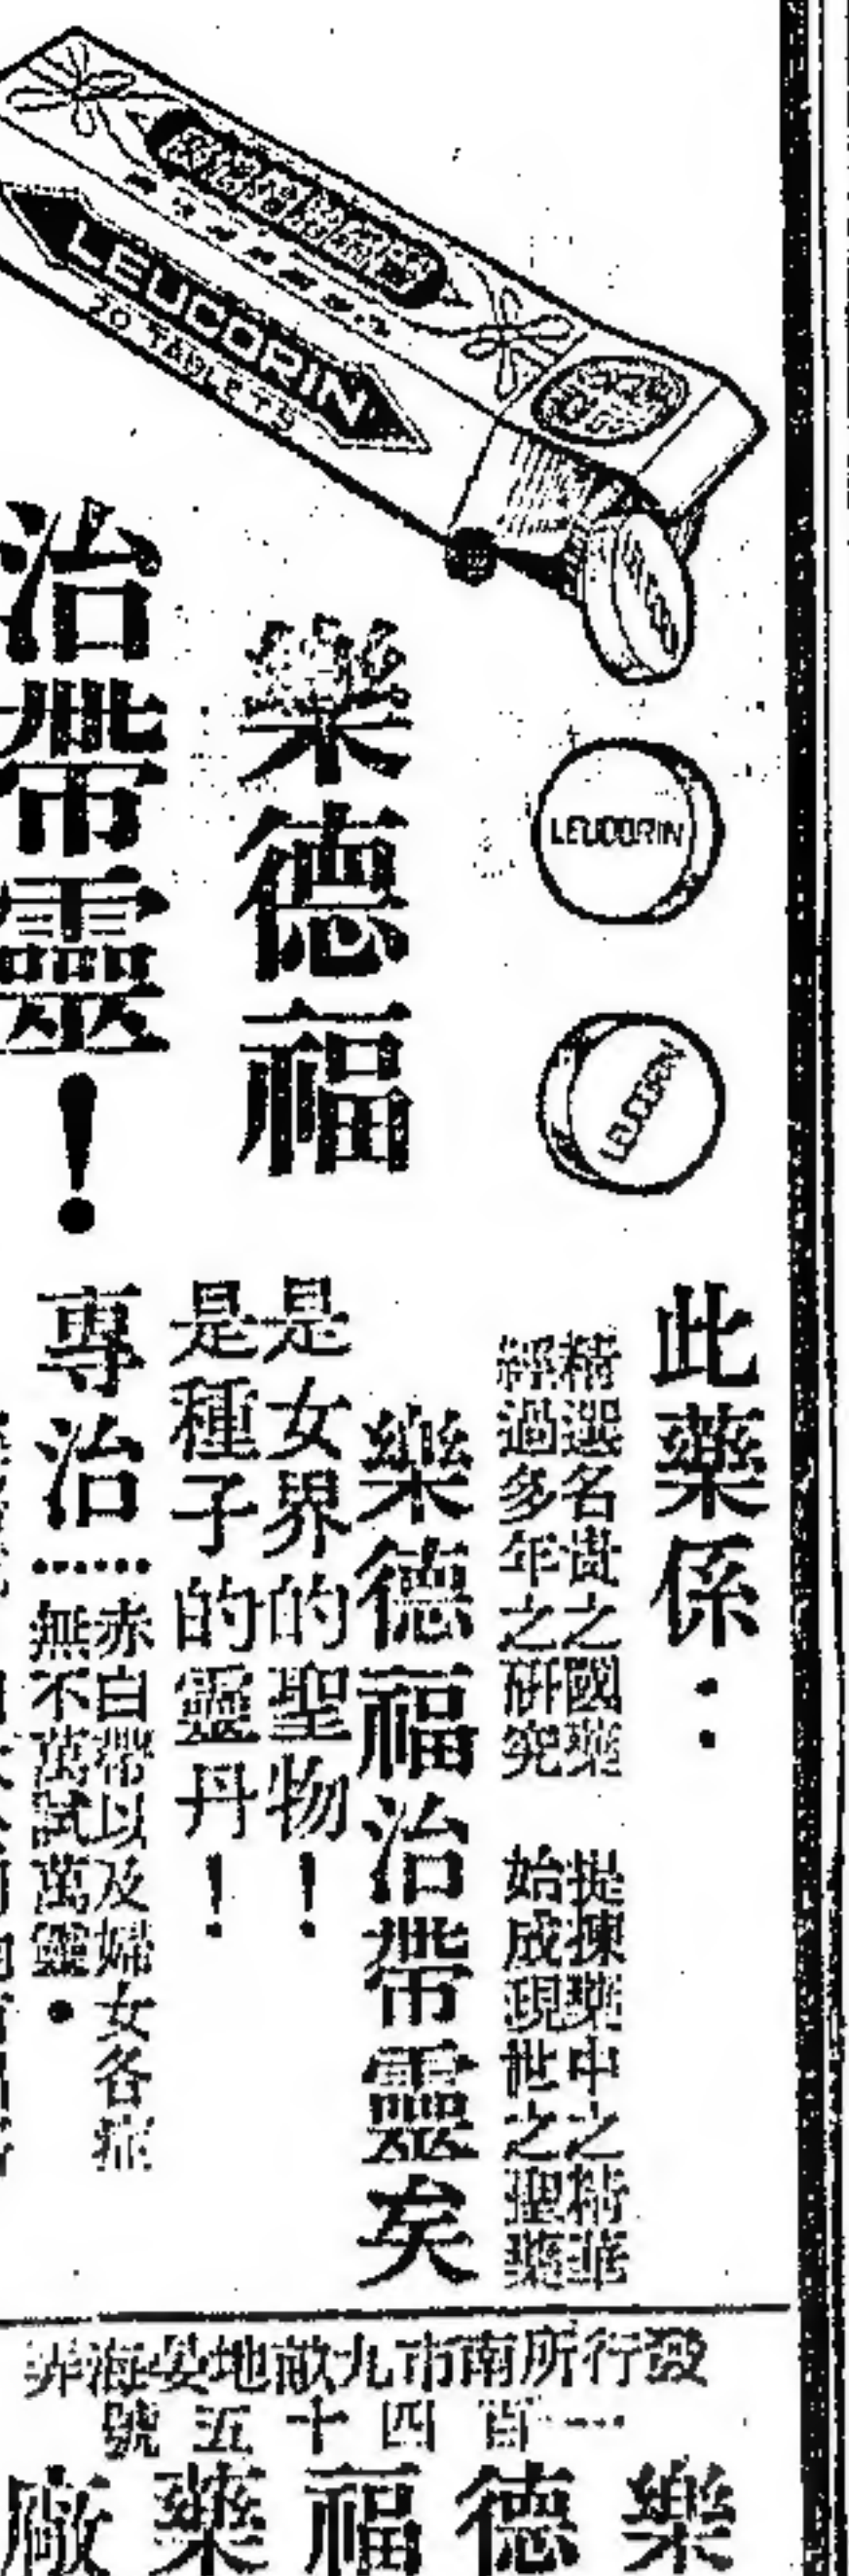 LEUCORIN
20 TABLETS
LEUCORIN
LEUCORIN
此藥係：
精選名貴之國藥　提揀藥中之精華
經過多年之研究　始成現世之聖藥
樂德福治帶靈矣
是女界的聖物！
是種子的靈丹！
樂德福
治帶靈！
專治……
赤白帶以及婦女各症
無不萬試萬靈．
發行所南市九畝地安海弄
一百四十五號
樂德福藥廠